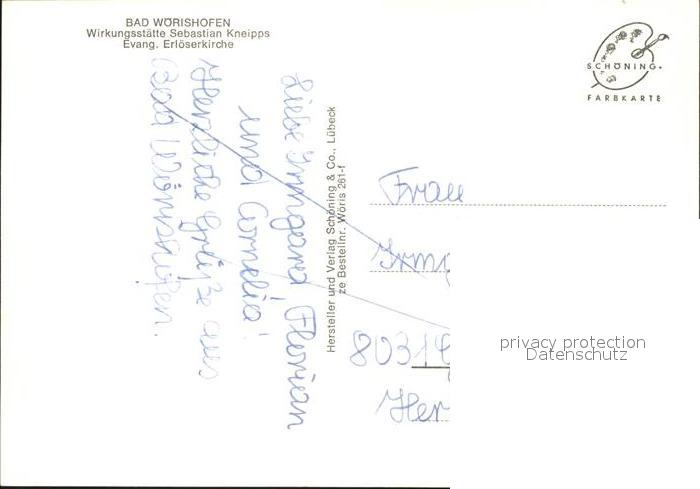 BAD WÖRISHOFEN
Wirkungsstätte Sebastian Kneipps
Evang. Erlöserkirche
SCHÖNING
FARBKARTE
Liebe Irmgard, Florian
und Cornelia!
Herzliche Grüße aus
Bad Wörishofen.
Hersteller und Verlag Schöning & Co., Lübeck
ze Bestellnr. Wöris 261-f
Frau
Irmg
8031
Her
privacy protection
Datenschutz